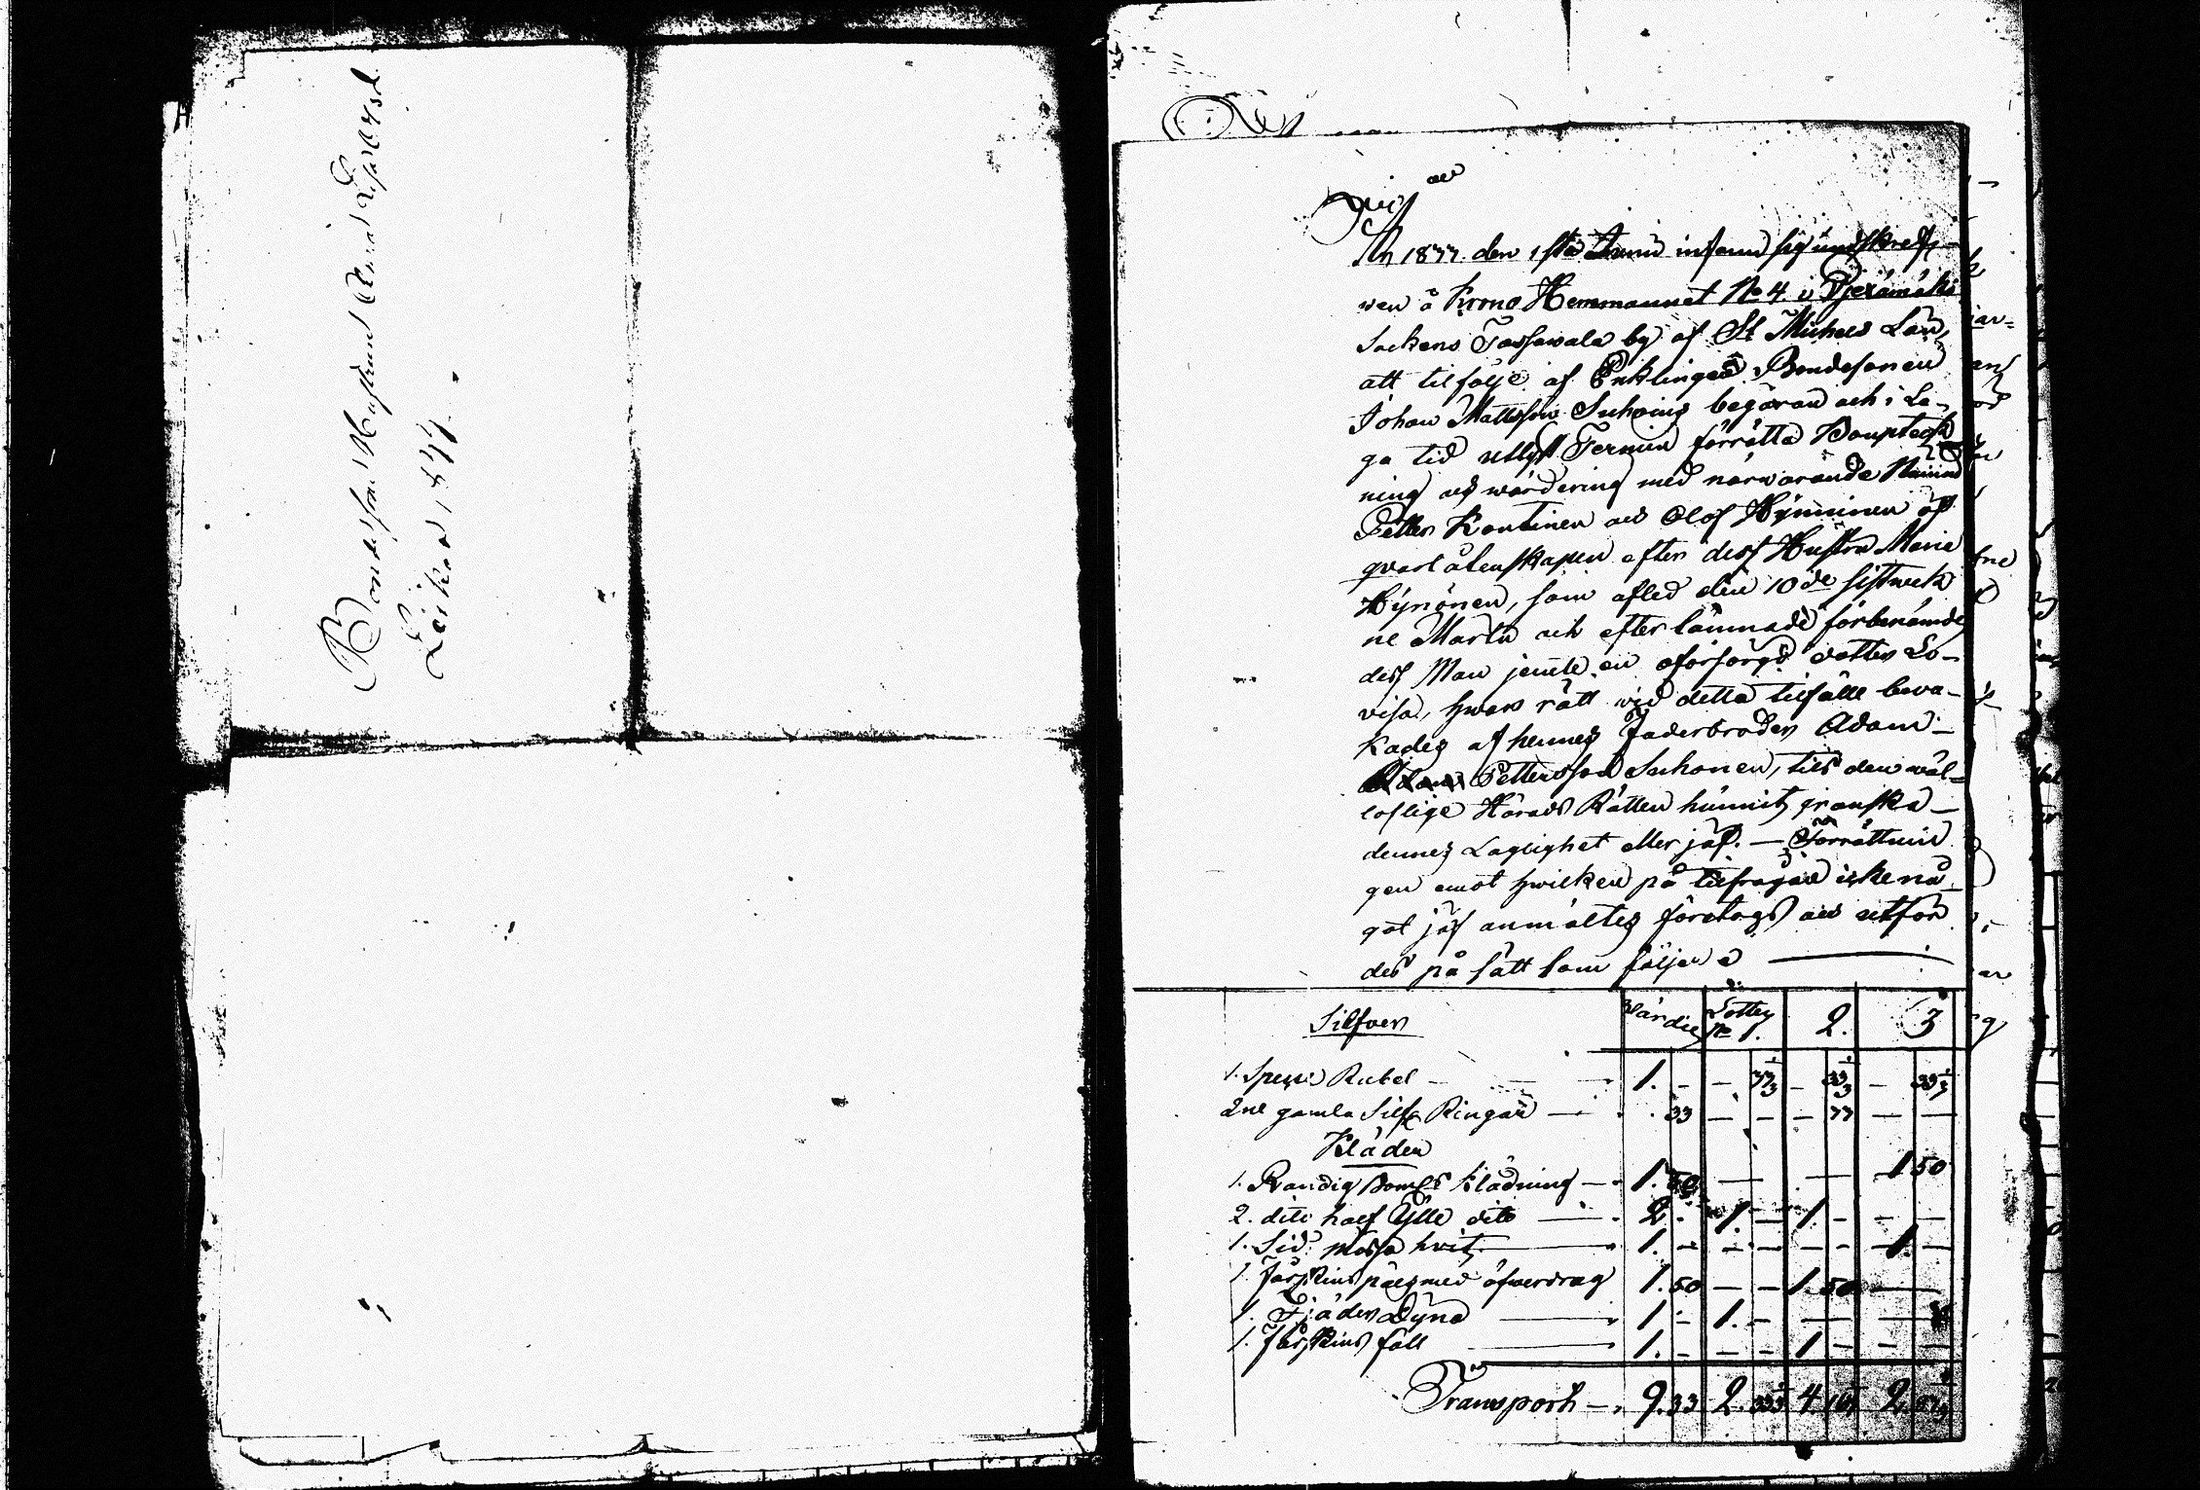 Bondesson Hustrun
Leika 1877.
An 1877 den 1sta Junii infann sig undskref-
ven å Krono Hemmannet No 4 i Pjexämäki
Sockens by af St Michels Län,
att tilfölje af Enklingens Bondesonen
Johan Mattsson Suhoins begäran och i La-
ga tid utlyst Termin förrätta Boupteck
ning och värdering med närvarande Nämnd
Petter Kontinen och Olof Hynninen af
qvarlåtenskapen efter dess Hustru Maria
Hynönen, som afled den 10de sistwek
ne Martii och efterlämnade förbenämde
dess Man jemte en oförsörgd dotter Lo-
visa, hvars rätt vid detta tilfälle beva-
kades af hennes Faderbroder Adam
Pettersson Suhonen, tils den väl-
loflige Härads Rätten hunnit granska
dennes Laglighet eller jäf. — Förrättnin
gen emot hvilken på tilfrågan icke nå-
got jäf anmältes företogs och utför
des på sätt som följer
Silfver Värdie Lotter No 1. 2. 3
1. Speci Rubel — 1. - - 33 1/3 - 33 1/3 - 33 1/3
2ne gamla Silf Ringar — 33 — — — 33 — —
Kläder
1. Randig Bomls Klädning — 1. 50 — — — — 1 50
2. dito half Ylle dito — 2 - 1. - 1. - — —
1. Sid mössa hvit — 1. - - - - - 1. -
1. Fårskins päls med öfverdrag 1. 50 — — 1. 50 — —
1. Fjäder Dyna — 1 - 1. - — — —
1. Fårskins fäll — 1. - - - 1 - — —
Transport — 9. 33 2. 33 1/3 4. 16 2.